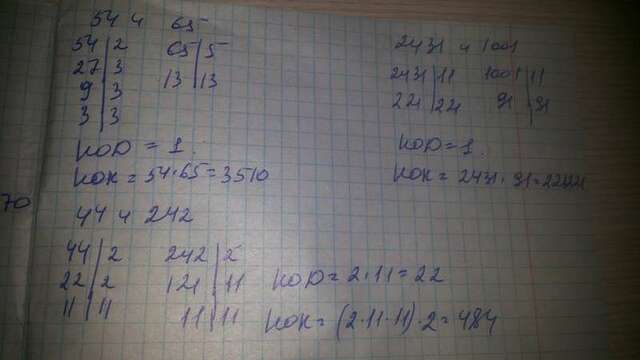 54 и 65
54 | 2 65 | 5
27 | 3 13 | 13
9 | 3
3 | 3
НОД = 1.
НОК = 54·65 = 3510
2431 и 1001
2431 | 11 1001 | 11
221 | 221 91 | 91
НОД = 1.
НОК = 2431 · 91 =
70
44 и 242
44 | 2 242 | 2
22 | 2 121 | 11
11 | 11 11 | 11
НОД = 2·11 = 22
НОК = (2·11·11)·2 = 484